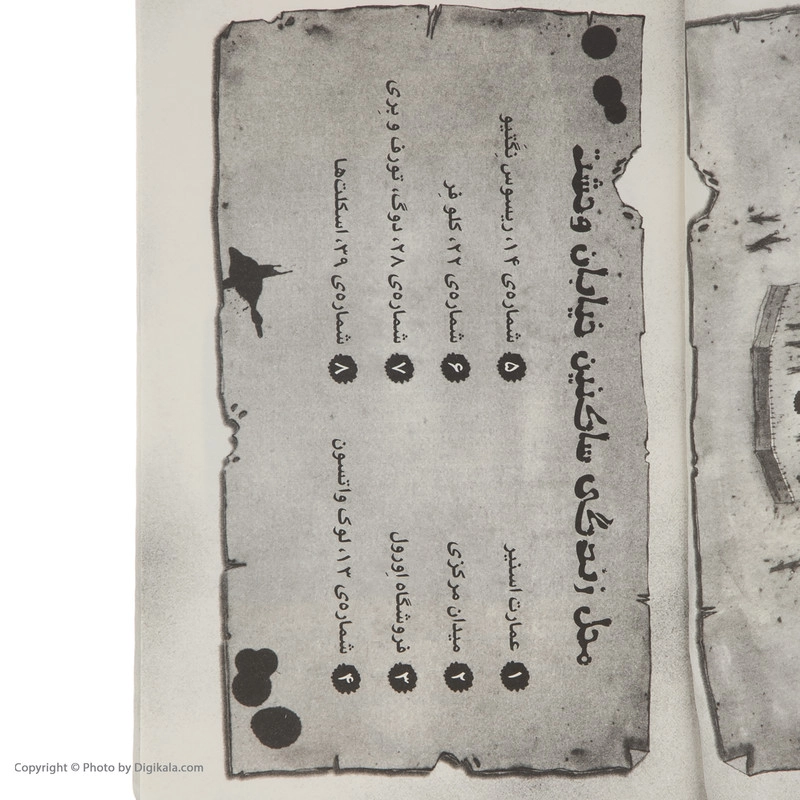 محل زندگی ساکنین خیابان وحشت
۱ عمارت اسنیر
۲ میدان مرکزی
۳ فروشگاه اِورول
۴ شماره‌ی ۱۳، لوک واتسون
۵ شماره‌ی ۱۴، ریسوس نِگَتیو
۶ شماره‌ی ۲۲، کلو فِر
۷ شماره‌ی ۲۸، دوگ، تورف و بِری
۸ شماره‌ی ۳۹، اسکلت‌ها
Copyright © Photo by Digikala.com